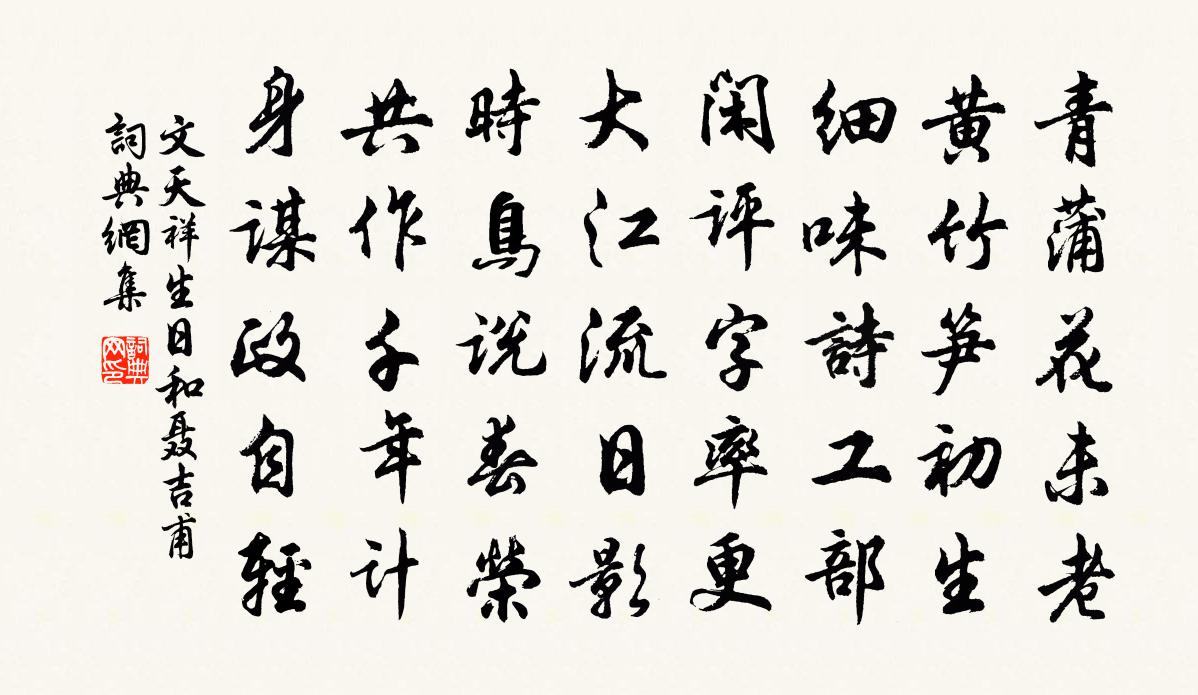 青蒲花未老
黄竹笋初生
細味詩工部
閑評字率更
大江流日影
時鳥説春榮
共作千年计
身謀政自輕
文天祥生日和聂吉甫
詞典網集
詞典
网印